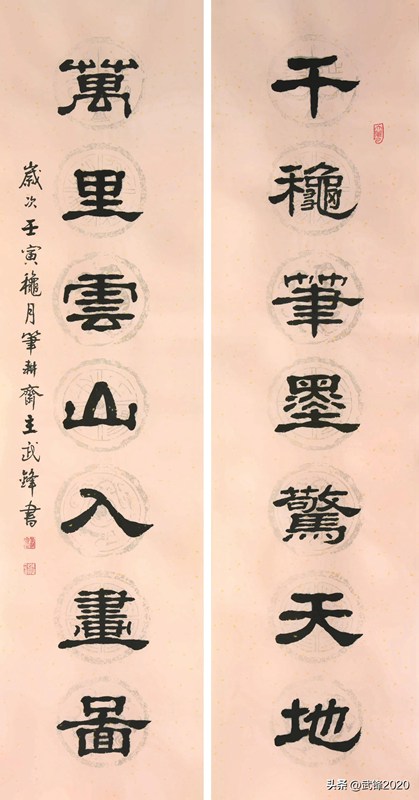 千穐筆墨驚天地
萬里雲山入畫圖
歲次壬寅穐月筆耕齋主武鋒書
头条 @武锋2020